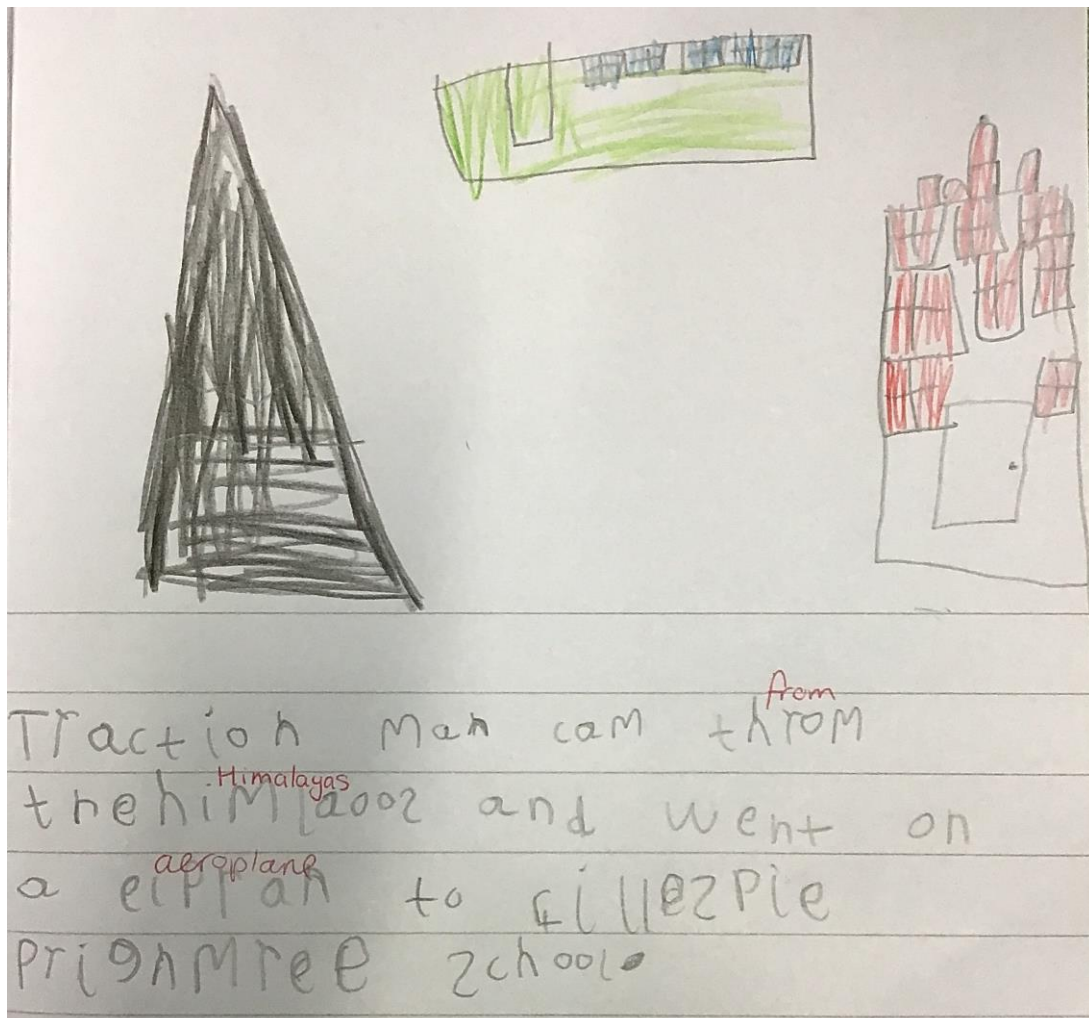 from
Traction Man cam throm
Himalayas
the himlaoos and went on
aeroplane
a eirplan to Gillespie
prighmree school.